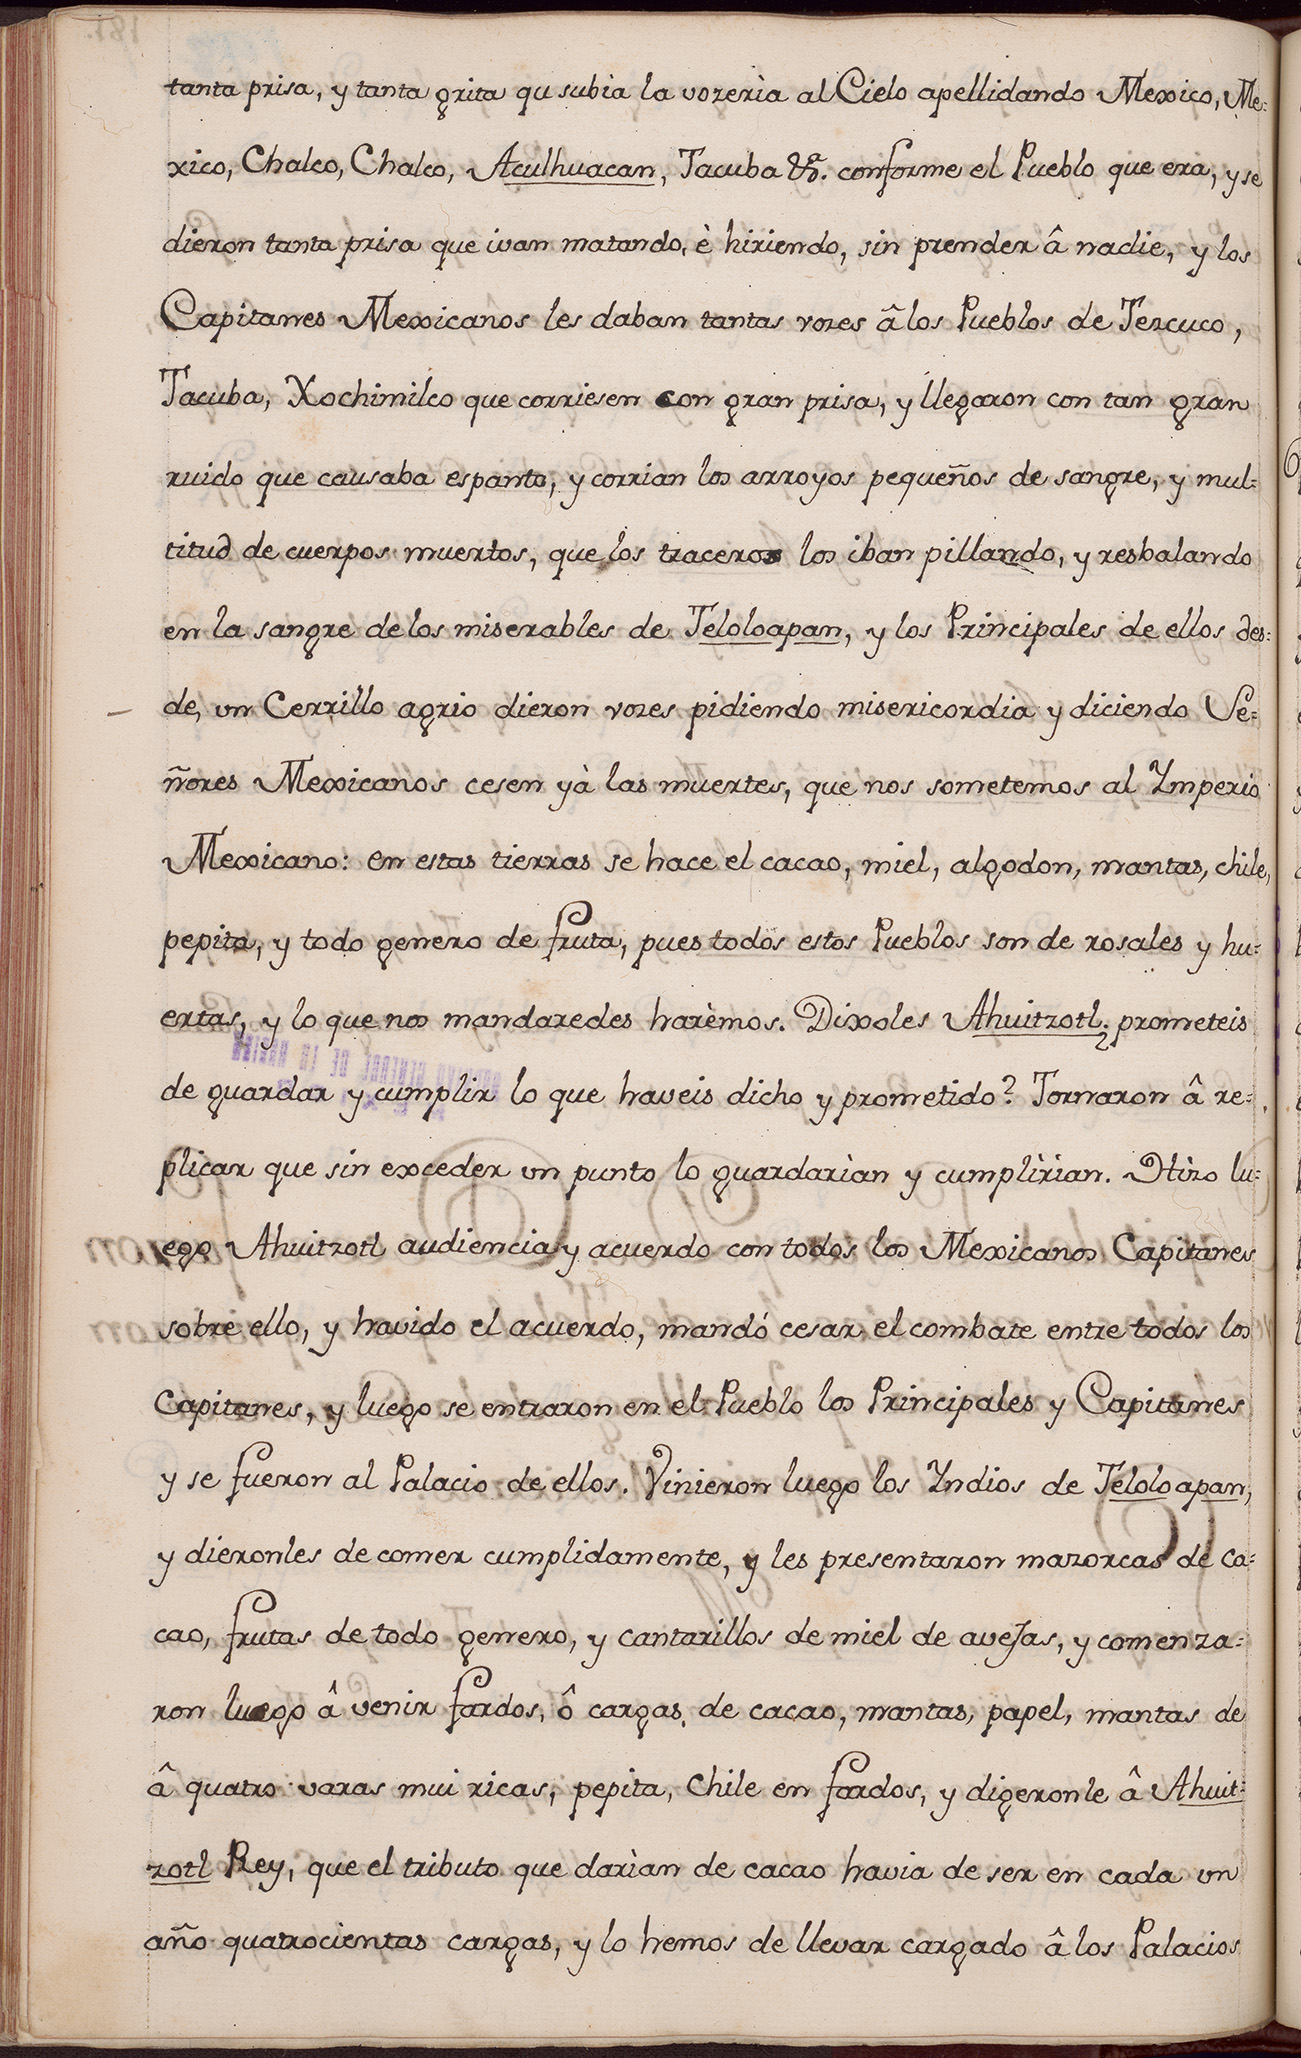 tanta prisa, y tanta grita qu subia la vozerìa al Cielo apellidando Mexico, Me=
xico, Chalco, Chalco, Aculhuacan, Tacuba &ª. conforme el Pueblo que era, y se
dieron tanta prisa que ivan matando, è hiriendo, sin prender â nadie, y los
Capitanes Mexicanos les daban tantas vozes â los Pueblos de Tezcuco,
Tacuba, Xochimilco que corriesen con gran prisa, y llegaron con tan gran
ruido que causaba espanto, y corrian los arroyos pequeños de sangre, y mul=
titud de cuerpos muertos, que los traceros los iban pillando, y resbalando
en la sangre de los miserables de Teloloapan, y los Principales de ellos des=
de, un Cerrillo agrio dieron vozes pidiendo misericordia y diciendo Se=
ñores Mexicanos cesen yà las muertes, que nos sometemos al Ymperio
Mexicano: en estas tierras se hace el cacao, miel, algodon, mantas, chile,
pepita, y todo genero de fruta, pues todos estos Pueblos son de rosales y hu=
ertas, y lo que nos mandaredes harèmos. Dixoles Ahuitzotl: prometeis
de guardar y cumplir lo que haveis dicho y prometido? Tornaron â re=
plicar que sin exceder un punto lo guardarìan y cumplirìan. Hizo lu=
ego Ahuitzotl audiencia y acuerdo con todos los Mexicanos Capitanes
sobre ello, y havido el acuerdo, mandó cesar el combate entre todos los
Capitanes, y luego se entraron en el Pueblo los Principales y Capitanes
y se fueron al Palacio de ellos. Vinieron luego los Yndios de Teloloapan,
y dieronles de comer cumplidamente, y les presentaron mazorcas de ca=
cao, frutas de todo genero, y cantarillos de miel de avejas, y comenza=
ron luego â venir fardos, ô cargas de cacao, mantas, papel, mantas de
â quatro varas mui ricas, pepita, Chile en fardos, y digeronle â Ahuit=
zotl Rey, que el tributo que darìan de cacao havia de ser en cada un
año quatrocientas cargas, y lo hemos de llevar cargado â los Palacios